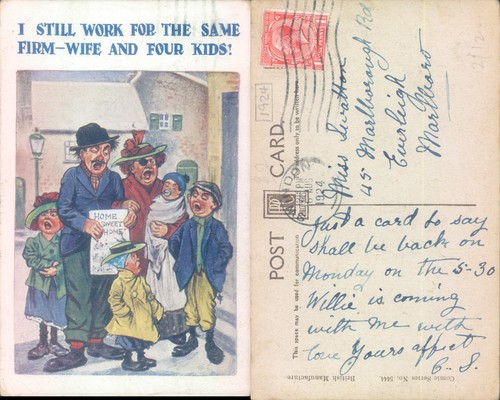 I STILL WORK FOR THE SAME
FIRM-WIFE AND FOUR KIDS!
HOME
SWEET
HOME
POST CARD.
1924
1924
Miss Swatton
45 Marlborough Rd
Curleigh
Just a card to say
shall be back on
Monday on the 5-30
Willie is coming
with me with
love Yours affect
This space may be used for communication
Comic Series No. 5464.
British Manufacture.